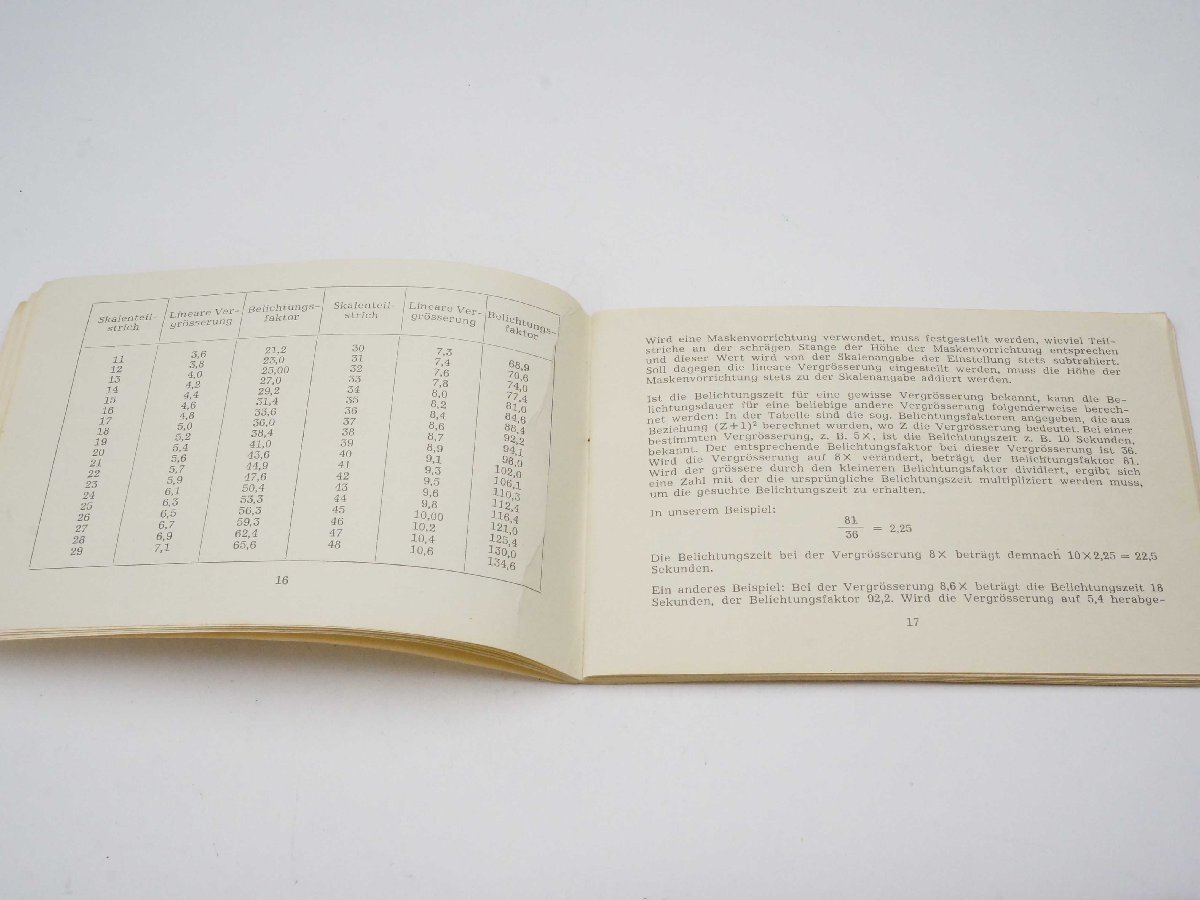 Skalenteil- Lineare Ver- Belichtungs- Skalenteil- Lineare Ver- Belichtungs-
strich grösserung faktor strich grösserung faktor
11 3,6 21,2 30 7,3 68,9
12 3,8 23,0 31 7,4 70,6
13 4,0 25,00 32 7,6 74,0
14 4,2 27,0 33 7,8 77,4
15 4,4 29,2 34 8,0 81,0
16 4,6 31,4 35 8,2 84,6
17 4,8 33,6 36 8,4 88,4
18 5,0 36,0 37 8,6 92,2
19 5,2 38,4 38 8,7 94,1
20 5,4 41,0 39 8,9 98,0
21 5,6 43,6 40 9,1 102,0
22 5,7 44,9 41 9,3 106,1
23 5,9 47,6 42 9,5 110,3
24 6,1 50,4 43 9,6 112,4
25 6,3 53,3 44 9,8 116,4
26 6,5 56,3 45 10,00 121,0
27 6,7 59,3 46 10,2 125,4
28 6,9 62,4 47 10,4 130,0
29 7,1 65,6 48 10,6 134,6
16
Wird eine Maskenvorrichtung verwendet, muss festgestellt werden, wieviel Teil-
striche an der schrägen Stange der Höhe der Maskenvorrichtung entsprechen
und dieser Wert wird von der Skalenangabe der Einstellung stets subtrahiert.
Soll dagegen die lineare Vergrösserung eingestellt werden, muss die Höhe der
Maskenvorrichtung stets zu der Skalenangabe addiert werden.
Ist die Belichtungszeit für eine gewisse Vergrösserung bekannt, kann die Be-
lichtungsdauer für eine beliebige andere Vergrösserung folgenderweise berech-
net werden: In der Tabelle sind die sog. Belichtungsfaktoren angegeben, die aus
Beziehung (Z+1)² berechnet wurden, wo Z die Vergrösserung bedeutet. Bei einer
bestimmten Vergrösserung, z. B. 5×, ist die Belichtungszeit z. B. 10 Sekunden,
bekannt. Der entsprechende Belichtungsfaktor bei dieser Vergrösserung ist 36.
Wird die Vergrösserung auf 8× verändert, beträgt der Belichtungsfaktor 81.
Wird der grössere durch den kleineren Belichtungsfaktor dividiert, ergibt sich
eine Zahl mit der die ursprüngliche Belichtungszeit multipliziert werden muss,
um die gesuchte Belichtungszeit zu erhalten.
In unserem Beispiel:
81
36 = 2,25
Die Belichtungszeit bei der Vergrösserung 8× beträgt demnach 10×2,25 = 22,5
Sekunden.
Ein anderes Beispiel: Bei der Vergrösserung 8,6× beträgt die Belichtungszeit 18
Sekunden, der Belichtungsfaktor 92,2. Wird die Vergrösserung auf 5,4 herabge-
17